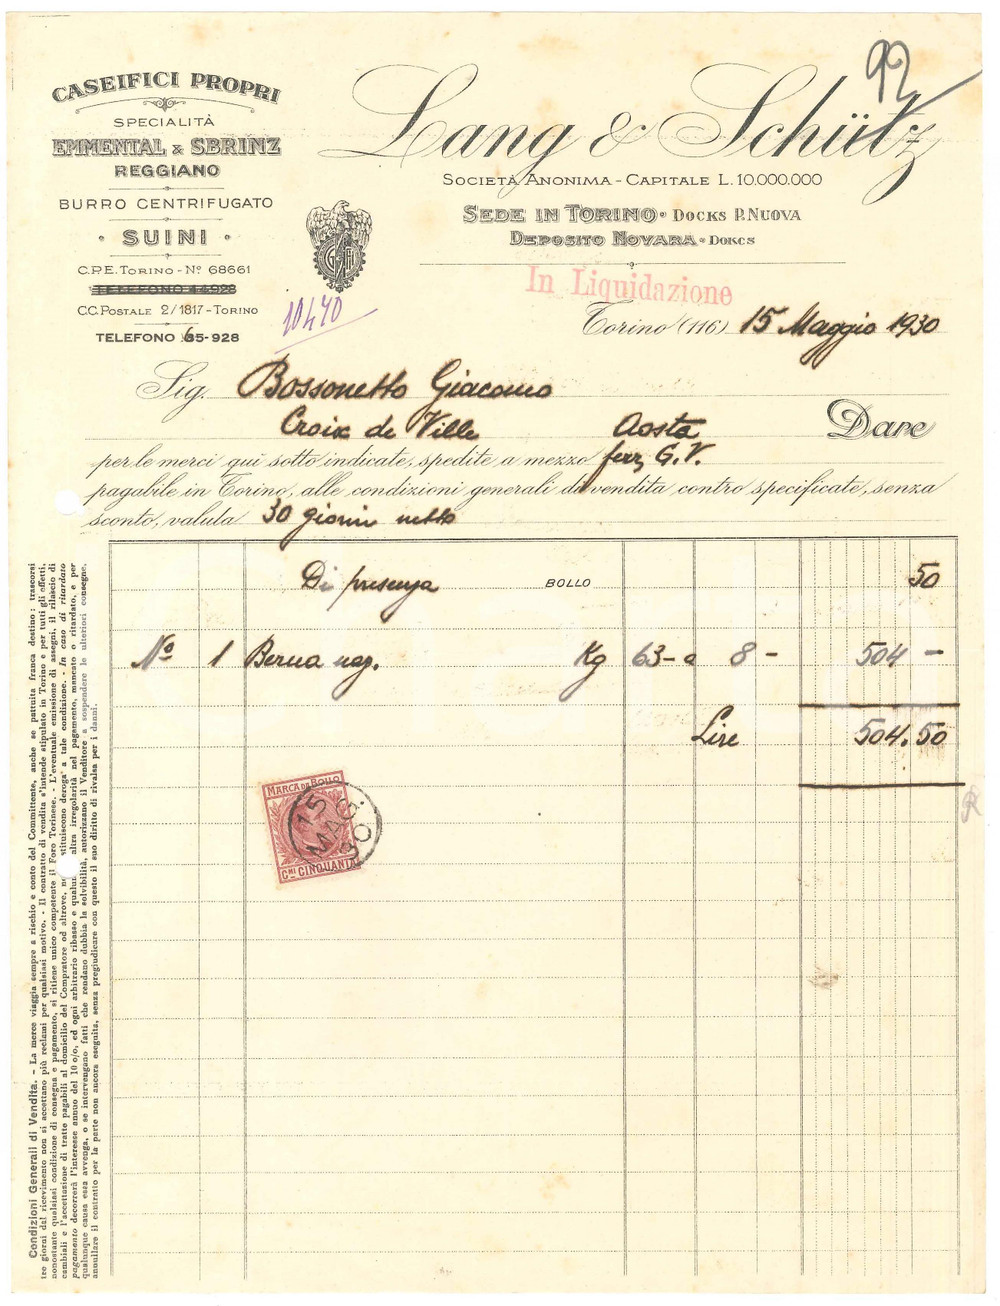 92
CASEIFICI PROPRI
SPECIALITÀ
EMMENTAL & SBRINZ
REGGIANO
BURRO CENTRIFUGATO
· SUINI ·
C.P.E. TORINO - Nº 68661
TELEFONO 44-928
C.C. POSTALE 2/1817 - TORINO
TELEFONO 65-928
10470
Lang & Schütz
SOCIETÀ ANONIMA - CAPITALE L. 10.000.000
SEDE IN TORINO - DOCKS P. NUOVA
DEPOSITO NOVARA - DOKCS
In Liquidazione
Torino (116) 15 Maggio 1930
Sig. Bossonetto Giacomo
Croix de Ville Aosta Dare
per le merci qui sotto indicate, spedite a mezzo ferr. G.V.
pagabile in Torino, alle condizioni generali di vendita contro specificate, senza
sconto, valuta 30 giorni netto
Di presenza BOLLO 50
Nº 1 Berna naz. Kg 63 - a 8 - 504 -
Lire 504.50
MARCA DA BOLLO
15 MAG. 30
CMI CINQUANTA
Condizioni Generali di Vendita. - La merce viaggia sempre a rischio e conto del Committente, anche se pattuita franca destino: trascorsi
tre giorni dal ricevimento non si accettano più reclami per qualsiasi motivo. - Il contratto di vendita s'intende stipulato in Torino e per tutti gli effetti,
nonostante qualsiasi condizione di consegna e pagamento, si ritiene unico competente il Foro Torinese. - L'eventuale emissione di assegni, il rilascio di
cambiali e l'accettazione di tratte pagabili al domicilio del Compratore od altrove, non costituiscono deroga a tale condizione. - In caso di ritardato
pagamento decorrerà l'interesse annuo del 10 o/o, ed ogni arbitrario ribasso e qualunque altra irregolarità nel pagamento, mancato o ritardato, e per
qualunque causa essa avvenga, o se intervengano fatti che rendano dubbia la solvibilità, autorizzano il Venditore a sospendere le ulteriori consegne,
annullare il contratto per la parte non ancora eseguita, senza pregiudicare con questo il suo diritto di rivalsa per i danni.